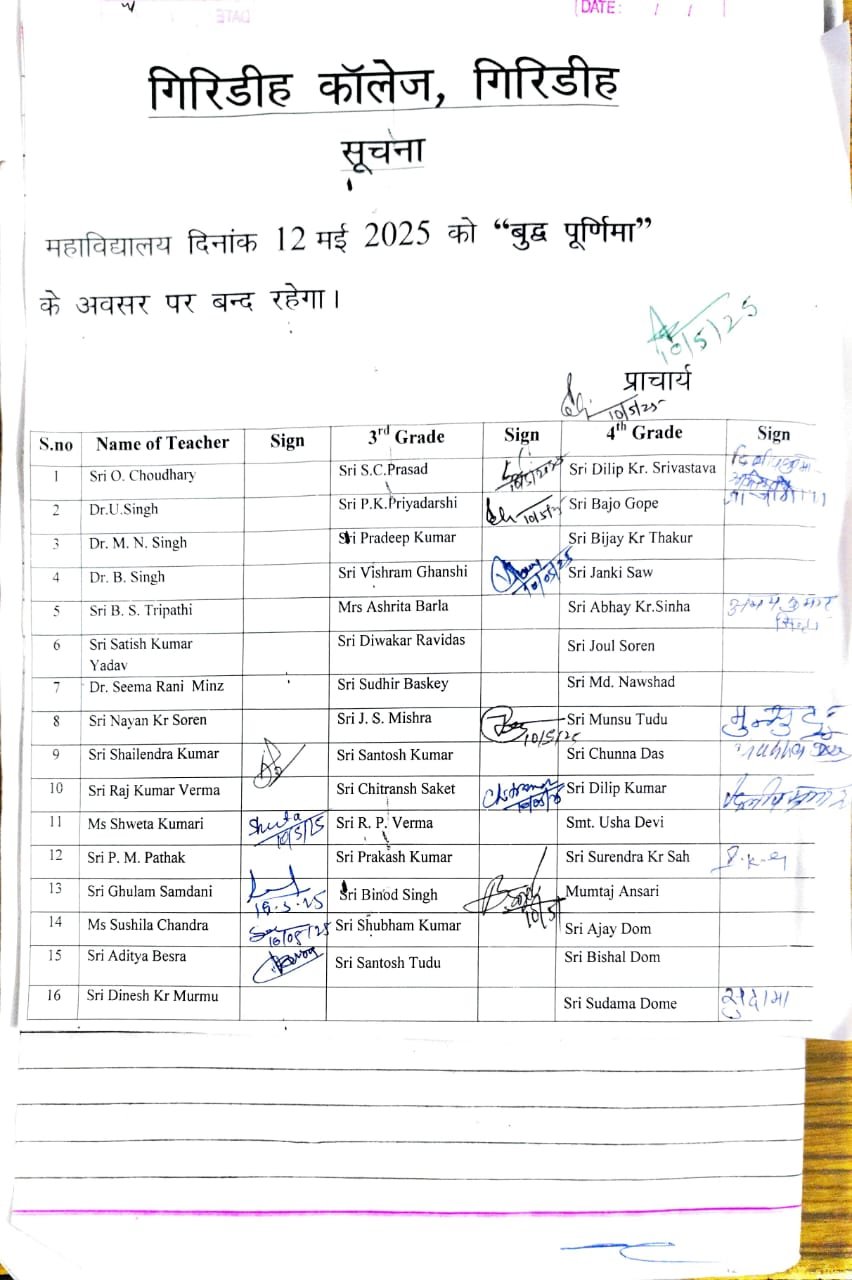 DATE: / / |
गिरिडीह कॉलेज, गिरिडीह
सूचना
महाविद्यालय दिनांक 12 मई 2025 को “बुद्व पूर्णिमा”
के अवसर पर बन्द रहेगा।
10/5/25
प्राचार्य
10/5/25
S.no Name of Teacher Sign 3rd Grade Sign 4th Grade Sign
1 Sri O. Choudhary Sri S.C.Prasad 10/5/2025 Sri Dilip Kr. Srivastava
2 Dr.U.Singh Sri P.K.Priyadarshi 10/5/25 Sri Bajo Gope
3 Dr. M. N. Singh Sri Pradeep Kumar Sri Bijay Kr Thakur
4 Dr. B. Singh Sri Vishram Ghanshi 10/05/25 Sri Janki Saw
5 Sri B. S. Tripathi Mrs Ashrita Barla Sri Abhay Kr.Sinha अभय कुमार सिन्हा
6 Sri Satish Kumar Yadav Sri Diwakar Ravidas Sri Joul Soren
7 Dr. Seema Rani Minz Sri Sudhir Baskey Sri Md. Nawshad
8 Sri Nayan Kr Soren Sri J. S. Mishra 10/5/25 Sri Munsu Tudu मुन्सु टुडू
9 Sri Shailendra Kumar Sri Santosh Kumar Sri Chunna Das
10 Sri Raj Kumar Verma Sri Chitransh Saket Sri Dilip Kumar
11 Ms Shweta Kumari Shweta 10/5/25 Sri R. P. Verma Smt. Usha Devi
12 Sri P. M. Pathak Sri Prakash Kumar Sri Surendra Kr Sah
13 Sri Ghulam Samdani 10.5.25 Sri Binod Singh 10/5/ Mumtaj Ansari
14 Ms Sushila Chandra 10/05/25 Sri Shubham Kumar Sri Ajay Dom
15 Sri Aditya Besra Sri Santosh Tudu Sri Bishal Dom
16 Sri Dinesh Kr Murmu Sri Sudama Dome सुदामा